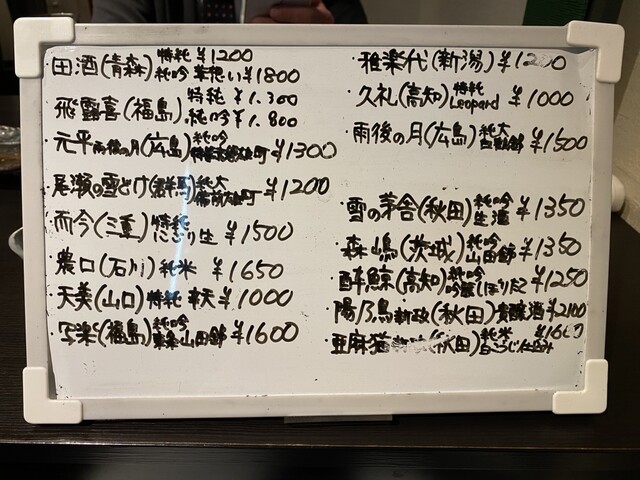 ・田酒(青森)特純 ¥1200
純吟 ¥1800
・飛露喜(福島)特純 ¥1.300
純吟 ¥1.800
・元平 雨後の月(広島)純吟 ¥1300
・尾瀬の雪どけ(群馬)純大 ¥1200
・而今(三重)特純 にごり生 ¥1500
・農口(石川) 純米 ¥1650
・天美(山口) 特純 ¥1000
・写楽(福島)純吟 東条山田錦 ¥1600
・雅楽代(新潟) ¥1200
・久礼(高知)特純 Leopard ¥1000
・雨後の月(広島)純大 ¥1500
・雪の茅舎(秋田)純吟 生酒 ¥1350
・森嶋(茨城)純吟 山田錦 ¥1350
・酔鯨(高知)純吟 吟麗しぼりたて ¥1250
陽乃鳥 新政(秋田)貴醸酒 ¥2100
・亜麻猫 (秋田)純米 白こうじ仕込み